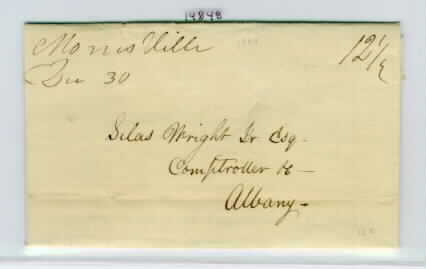 14848
Morrisville 12 1/2
Dec 30
Silas Wright Jr Esq.
Comptroller &c
Albany